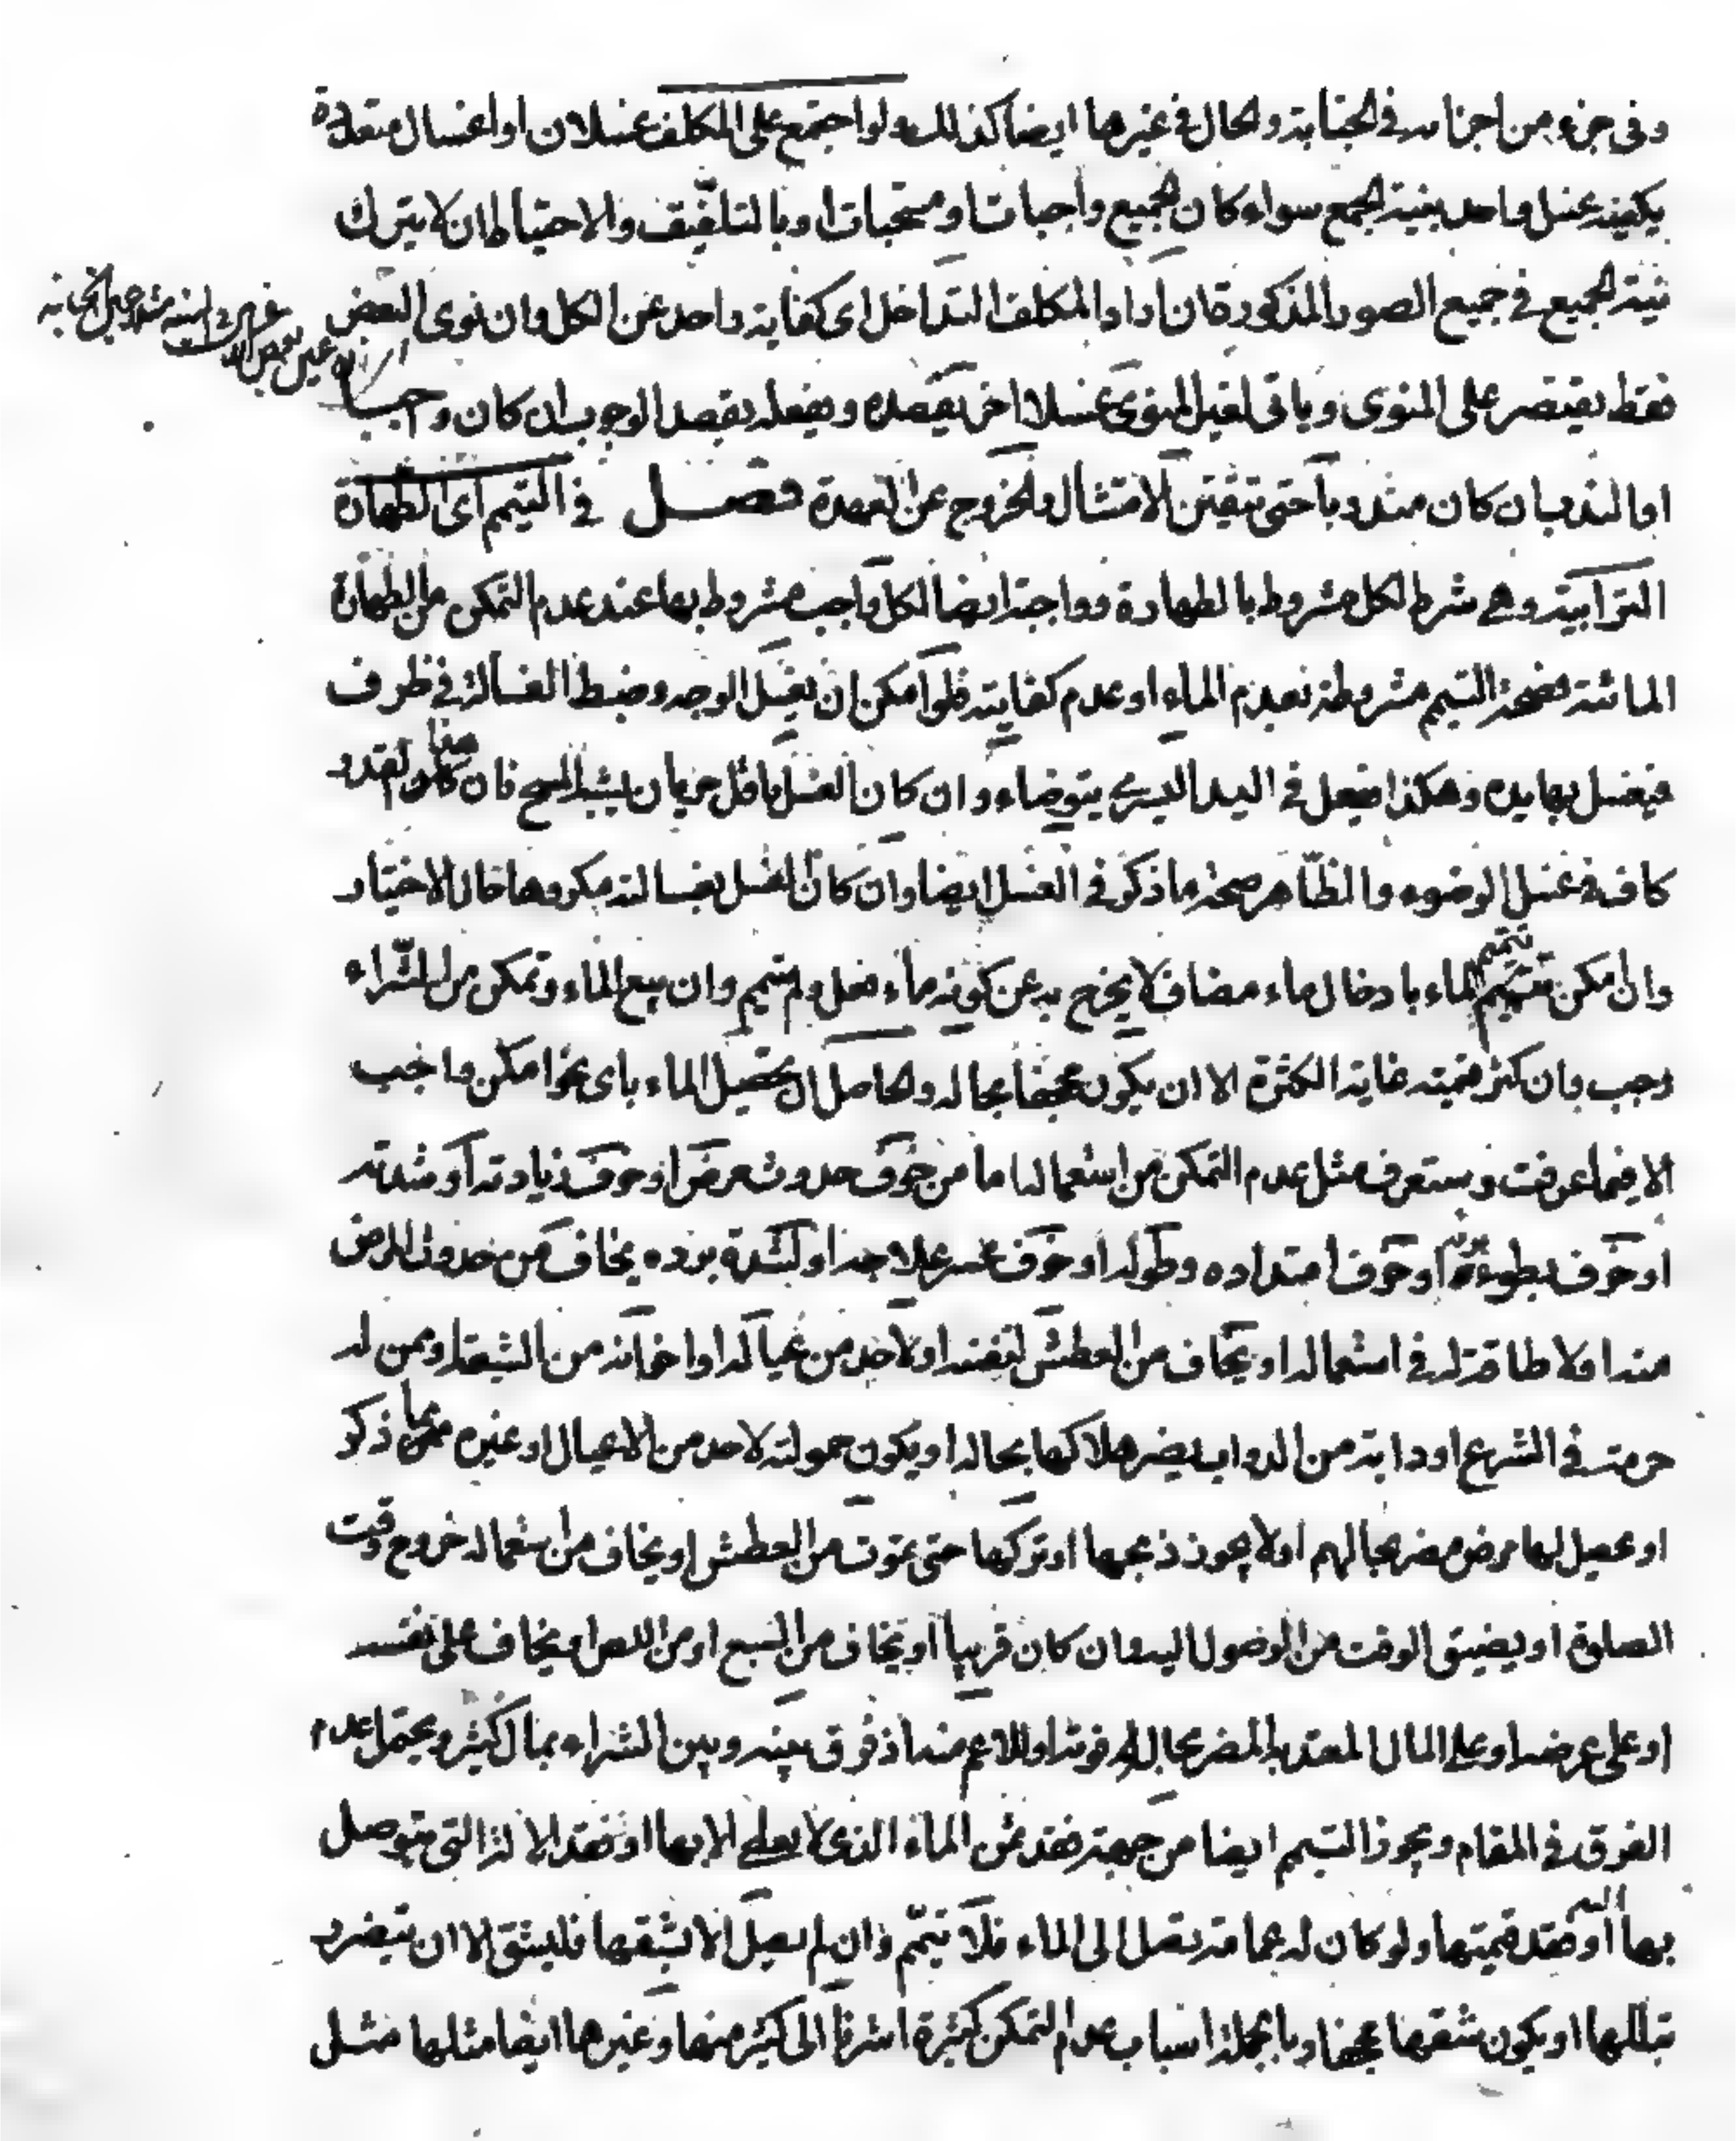 وفى جزء من اجزائه فى الجنابة والحال فى غيرها ايضا كذلك ولو اجتمع على المكلف غسلان او اغسال متعددة
يكفيه غسل واحد بنية الجمع سواء كان الجميع واجبات او مستحبات او بالتلفيق والاحتياط ان لا يترك
نية الجميع فى جميع الصور المذكورة فان اراد المكلف التداخل اى كفاية واحد عن الكل وان نوى البعض
فقط يقتصر على المنوى وياتى لغير المنوى غسلا اخر يقصده ويفعله بقصد الوجوب ان كان واجبا
او الندب ان كان مندوبا حتى يتيقن الامتثال والخروج عن العهدة فصل فى التيمم اى الطهارة
الترابية وهى شرط لكل مشروط بالطهارة وواجبة ايضا لكل واجب مشروط بها عند عدم التمكن من الطهارة
المائية فصحة التيمم مشروطة بعدم الماء او عدم كفايته فلو امكن ان يغسل الوجه وضبط الغسالة فى ظرف
فيغسل بها يده وهكذا فيعل فى اليد اليسرى يتوضاء وان كان الغسل باقل جريان يشبه المسح فان هذا القدر
كاف فى غسل الوضوء والظاهر صحة ما ذكر فى الغسل ايضا وان كان الغسل بغسالته مكروها حال الاختيار
وان امكن تتميم الماء بادخال ماء مضاف لا يخرج به عن كونه ماء فعل ولم يتيمم وان بيع الماء وتمكن من الشراء
وجب وان كثر قيمته غاية الكثرة الا ان يكون مجحفا بحاله والحاصل ان تحصيل الماء باى نحو امكن واجب
الا فيما عرفت وستعرف مثل عدم التمكن من استعماله اما من خوف حدوث مرض او خوف زيادته او شدته
او خوف بطوء برئه او خوف امتداده وطوله او خوف عسر علاجه او لشدة برده يخاف من حدوث المرض
منه او لا طاقة له فى استعماله او يخاف من العطش لنفسه او لاحد من عياله او اخوانه من الشيعة او ممن له
حرمة فى الشرع او دابة من الدواب يضر هلاكها بحاله او يكون حمولته لاحد من الاعيال او غيره مما ذكر
او يحصل لها مرض مضر بحالهم او لا يجوز ذبحها او تركها حتى تموت من العطش او يخاف من استعماله خروج وقت
الصلوة او يضيق الوقت من الوصول اليه وان كان قريبا او يخاف من السبع او من اللص او يخاف على نفسه
او على عرضه او على المال المعتد به المضر بحاله فوته او للاعم منه اذ فرق بينه وبين الشراء بمال كثير ويحتمل عدم
الفرق فى المقام ويجوز التيمم ايضا من جهة فقد ثمن الماء الذى لا يعطى الا بها او فقد الالة التى يتوصل
بها اليه او فقد قيمتها ولو كان له عمامة تصل الى الماء فلا تيمم وان لم يصل الا بشقها فليشق الا ان يتضرر
تبللها او يكون شقها مجحفا وبالجملة اسباب عدم التمكن كثيرة اشرنا الى كثير منها وغيرها ايضا مثلها مثل